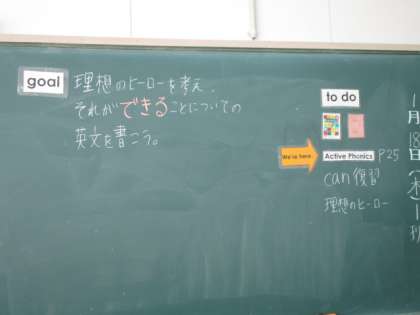 goal
理想のヒーローを考え、
それができることについての
英文を書こう。
to do
We're here.
Active Phonics P25
can 復習
理想のヒーロー
1月18日(木)1